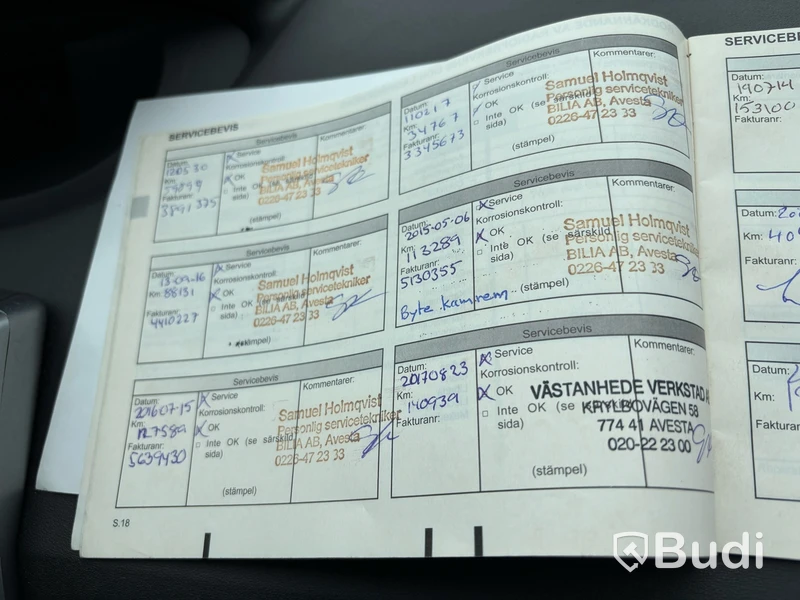 SERVICEBEVIS
Servicebevis
Datum:
120530
Km:
Fakturanr:
3891375
x Service
Korrosionskontroll:
x OK
□ Inte OK (se särskild sida)
(stämpel)
Kommentarer:
Samuel Holmqvist
Personlig servicetekniker
BILIA AB, Avesta
0226-47 23 33
Datum:
110217
Km:
34767
Fakturanr:
3345673
Service
Korrosionskontroll:
OK
□ Inte OK (se
sida)
(stämpel)
Kommentarer:
Samuel Holmqvist
Personlig servicetekniker
BILIA AB, Avesta
0226-47 23 33
Servicebevis
Datum:
13-09-16
Km:
88131
Fakturanr:
4410227
x Service
Korrosionskontroll:
x OK
□ Inte OK (se särskild
sida)
(stämpel)
Kommentarer:
Samuel Holmqvist
Personlig servicetekniker
BILIA AB, Avesta
0226-47 23 33
Servicebevis
Datum:
2015-05-06
Km:
113289
Fakturanr:
5130355
Byte kamrem
x Service
Korrosionskontroll:
x OK
□ Inte OK (se särskild
sida)
(stämpel)
Kommentarer:
Samuel Holmqvist
Personlig servicetekniker
BILIA AB, Avesta
0226-47 23 33
Servicebevis
Datum:
2016-07-15
Km:
127589
Fakturanr:
5639430
x Service
Korrosionskontroll:
x OK
□ Inte OK (se särskild
sida)
(stämpel)
Kommentarer:
Samuel Holmqvist
Personlig servicetekniker
BILIA AB, Avesta
0226-47 23 33
Servicebevis
Datum:
20170823
Km:
140939
Fakturanr:
x Service
Korrosionskontroll:
x OK
□ Inte OK (se
sida)
(stämpel)
Kommentarer:
VÄSTANHEDE VERKSTAD
KRYLBOVÄGEN 58
774 41 AVESTA
020-22 23 00
S.18
SERVICEBEV
Datum:
190714
Km:
153100
Fakturanr:
Datum:
Km:
Fakturanr:
Datum:
Km:
Fakturanr:
Budi